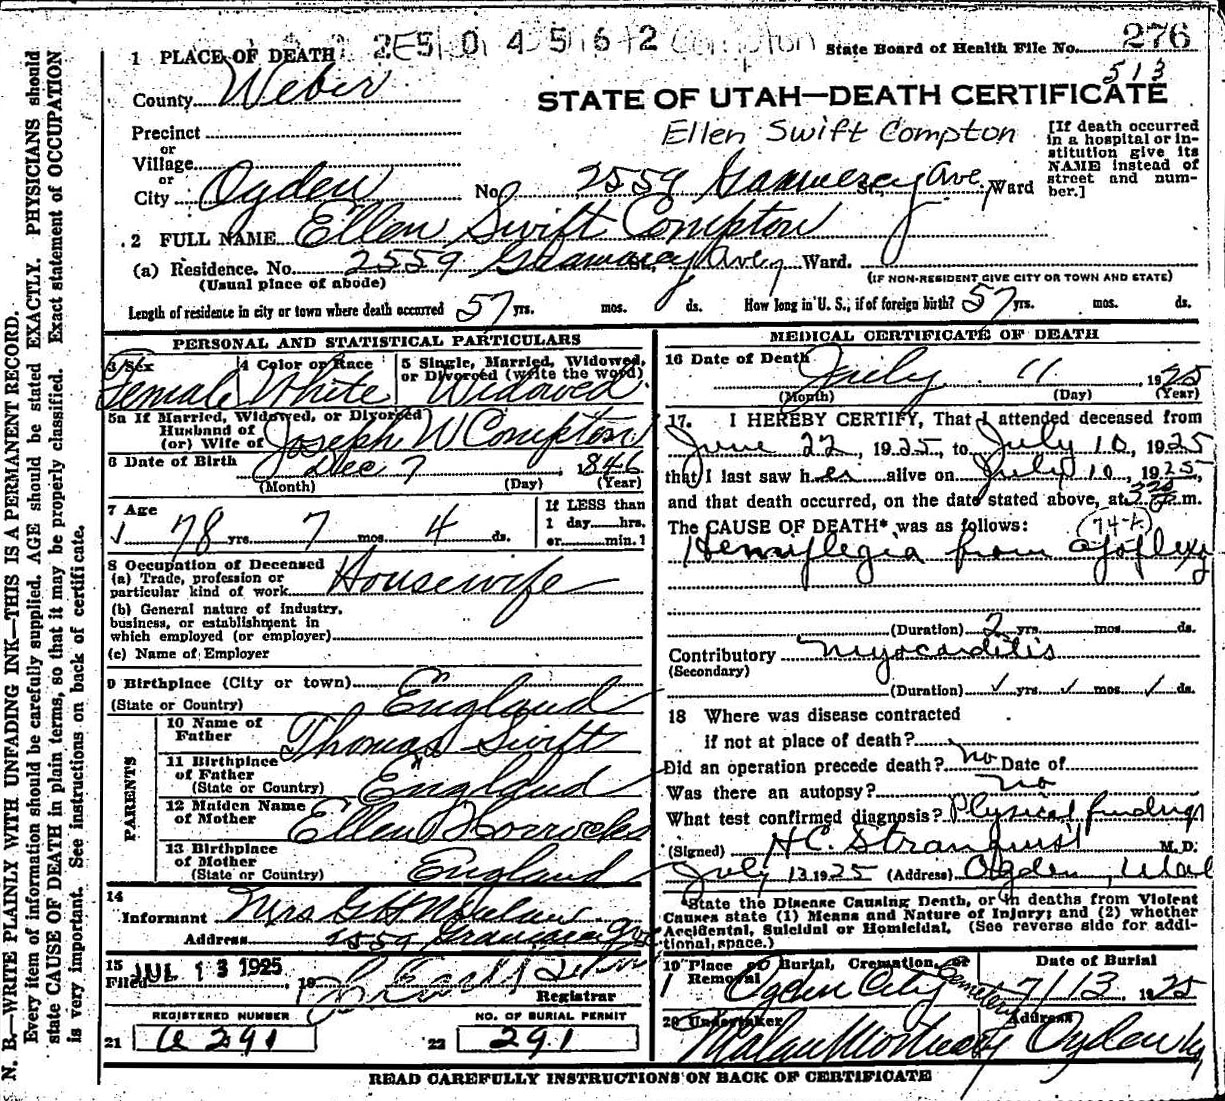 N. B.—WRITE PLAINLY WITH UNFADING INK—THIS IS A PERMANENT RECORD.
Every item of information should be carefully supplied. AGE should be stated EXACTLY. PHYSICIANS should
state CAUSE OF DEATH in plain terms, so that it may be properly classified. Exact statement of OCCUPATION
is very important. See instructions on back of certificate.
2504562 Compton
State Board of Health File No. 276
513
1 PLACE OF DEATH
County Weber
STATE OF UTAH—DEATH CERTIFICATE
Ellen Swift Compton
Precinct
or
Village
or
City Ogden No. 2559 Gramercy Ave St., Ward
[If death occurred
in a hospital or in-
stitution give its
NAME instead of
street and num-
ber.]
2 FULL NAME Ellen Swift Compton
(a) Residence. No. 2559 Gramercy Ave, Ward.
(Usual place of abode)
(IF NON-RESIDENT GIVE CITY OR TOWN AND STATE)
Length of residence in city or town where death occurred 57 yrs. mos. ds. How long in U. S., if of foreign birth? 57 yrs. mos. ds.
PERSONAL AND STATISTICAL PARTICULARS
3 Sex Female
4 Color or Race White
5 Single, Married, Widowed,
or Divorced (write the word) Widowed
5a If Married, Widowed, or Divorced
Husband of
(or) Wife of Joseph W Compton
6 Date of Birth Dec 7, 1846
(Month) (Day) (Year)
7 Age
78 yrs. 7 mos. 4 ds.
If LESS than
1 day hrs.
or min.
8 Occupation of Deceased
(a) Trade, profession or
particular kind of work Housewife
(b) General nature of industry,
business, or establishment in
which employed (or employer)
(c) Name of Employer
9 Birthplace (City or town)
(State or Country) England
PARENTS
10 Name of
Father Thomas Swift
11 Birthplace
of Father
(State or Country) England
12 Maiden Name
of Mother Ellen Horrocks
13 Birthplace
of Mother
(State or Country) England
14
Informant Mrs G H
Address 2559 Gramercy Ave
15
Filed JUL 13 1925 19
Registrar
REGISTERED NUMBER
21 a 291
NO. OF BURIAL PERMIT
22 291
MEDICAL CERTIFICATE OF DEATH
16 Date of Death July 11, 1925
(Month) (Day) (Year)
17. I HEREBY CERTIFY, That I attended deceased from
June 22, 1925, to July 10, 1925
that I last saw her alive on July 10, 1925,
and that death occurred, on the date stated above, at m.
The CAUSE OF DEATH* was as follows: 74-a
Hemiplegia from apoplexy
(Duration) 2 yrs. mos. ds.
Contributory Myocarditis
(Secondary)
(Duration) ✓ yrs. ✓ mos. ✓ ds.
18 Where was disease contracted
if not at place of death?
Did an operation precede death? no Date of
Was there an autopsy? no
What test confirmed diagnosis? Physical findings
(Signed) H.C. Stranquist M.D.
July 12 1925 (Address) Ogden, Utah
*State the Disease Causing Death, or in deaths from Violent
Causes state (1) Means and Nature of Injury; and (2) whether
Accidental, Suicidal or Homicidal. (See reverse side for addi-
tional space.)
19 Place of Burial, Cremation, or
Removal Ogden City Cemetery
Date of Burial
7/13 1925
20 Undertaker Address
Malan Mortuary Ogden
READ CAREFULLY INSTRUCTIONS ON BACK OF CERTIFICATE